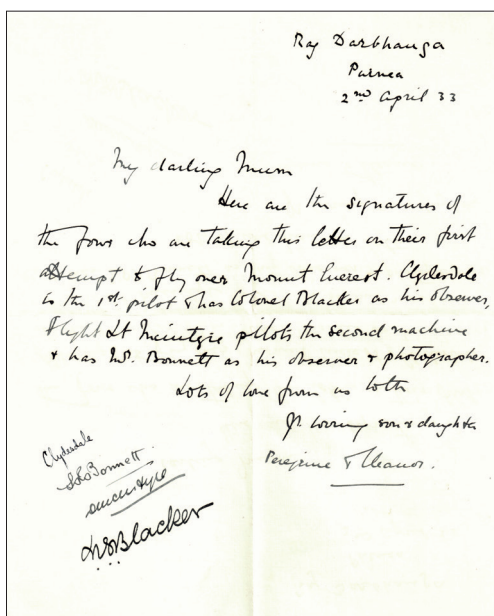 Raj Darbhanga
Purnea
2nd April 33
My darling Mum
Here are the signatures of
the four who are taking this letter on their first
attempt to fly over Mount Everest. Clydesdale
is the 1st pilot & has Colonel Blacker as his observer,
Flight Lt McIntyre pilots the second machine
& has Mr. Bonnett as his observer & photographer.
Lots of love from us both
Yr loving son & daughter
Peregrine & Eleanor.
Clydesdale
S R Bonnett.
D McIntyre
L V S Blacker